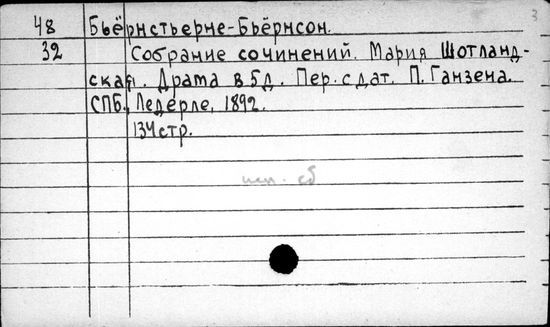 48 Бьёрнстьерне-Бьёрнсон.
32 Собрание сочинений. Мария Шотланд-
ская. Драма в 5 д. Пер. с дат. П. Ганзена.
СПБ, Ледерле, 1892.
134 стр.
сб
3